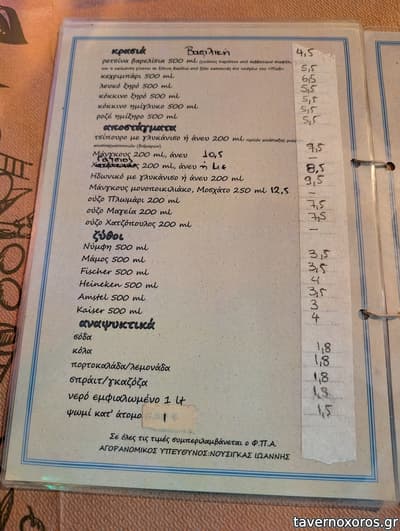 κρασιά Βασιλική
ρετσίνα βαρελίσια 500 ml 4,5
κεχριμπάρι 500 ml 5,5
λευκό ξηρό 500 ml 6,5
κόκκινο ξηρό 500 ml 5,5
κόκκινο ημίγλυκο 500 ml 5,5
ροζέ ημίξηρο 500 ml 5,5
αποστάγματα
τσίπουρο με γλυκάνισο ή άνευ 200 ml 9,5
Μάγκους 200 ml, άνευ 10,5 –
200 ml, άνευ ή με 8,5
Ηδωνικό με γλυκάνισο ή άνευ 200 9,5
Μάγκους μονοποικιλιακό, Μοσχάτο 250 ml 12,5 –
ούζο Πλωμάρι 200 ml 7,5
ούζο Μαγεία 200 ml 7,5
ούζο Χατζόπουλος 200 ml –
ζύθοι
Νύμφη 500 ml 3,5
Μάμος 500 ml 3,5
Fischer 500 ml 4
Heineken 500 ml 3,5
Amstel 500 ml 3
Kaiser 500 ml 4
αναψυκτικά
σόδα 1,8
κόλα 1,8
πορτοκαλάδα/λεμονάδα 1,8
σπράιτ/γκαζόζα 1,8
νερό εμφιαλωμένο 1 lt 1,5
ψωμί κατ' άτομο 1
Σε όλες τις τιμές συμπεριλαμβάνεται ο Φ.Π.Α.
ΑΓΟΡΑΝΟΜΙΚΟΣ ΥΠΕΥΘΥΝΟΣ:ΝΟΥΣΙΓΚΑΣ ΙΩΑΝΝΗΣ
tavernoxoros.gr